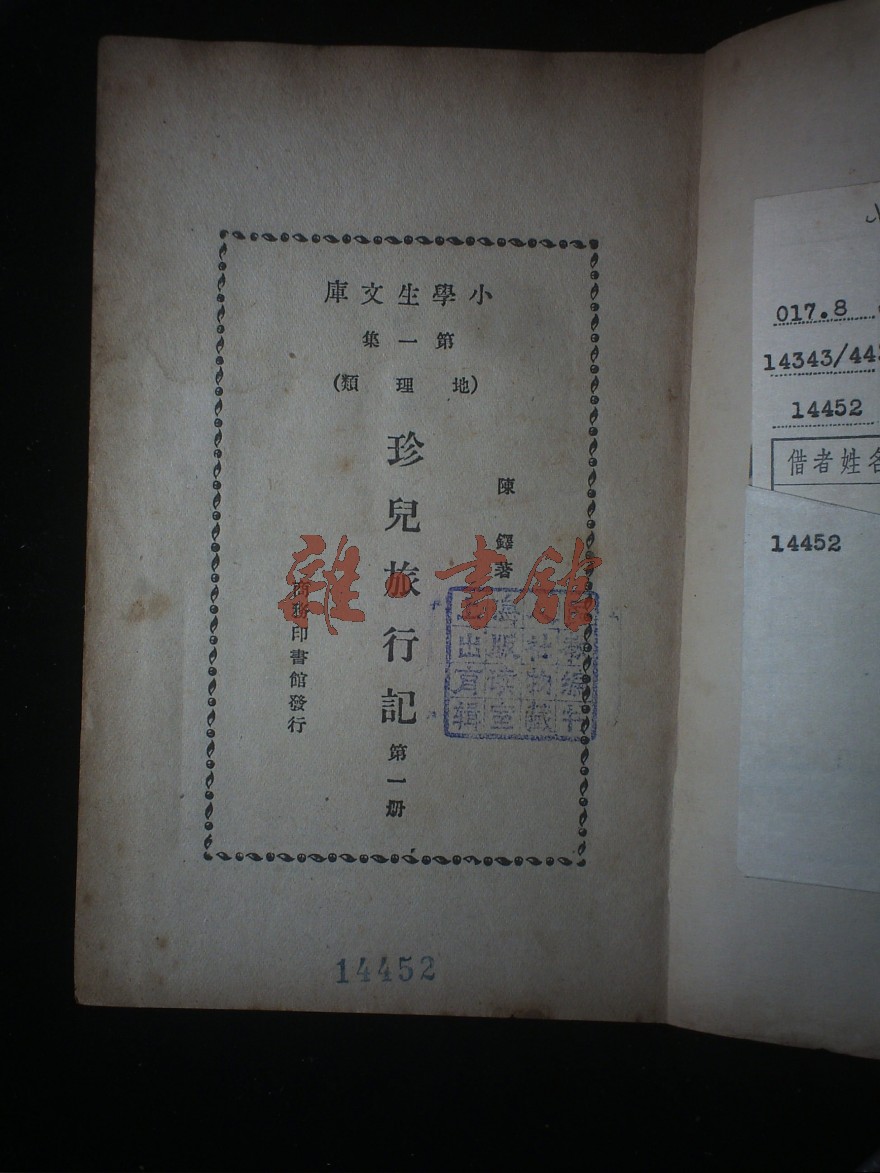 小學生文庫
第一集
(地理類)
陳鐸著
珍兒旅行記 第一册
商務印書館發行
雜·書館
14452
017.8
14343/44
14452
借者姓名
14452